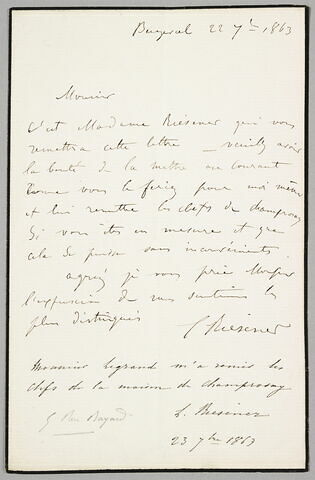 Buzeval 22 7bre 1863
Monsieur
C'est Madame Riésener qui vous
remettra cette lettre _ veuillez avoir
la bonté de la mettre au courant
comme vous le feriez pour moi même
et lui remettre les clefs de champrosay
Si vous êtes en mesure et que
cela se puisse sans inconvénients.
agréez je vous prie Monsieur
l'expression de mes sentiments les
plus distingués
L Riesener
Monsieur Legrand m'a remis les
clefs de la maison de champrosay
L. Riesener
23 7bre 1863
5 Rue Bayard